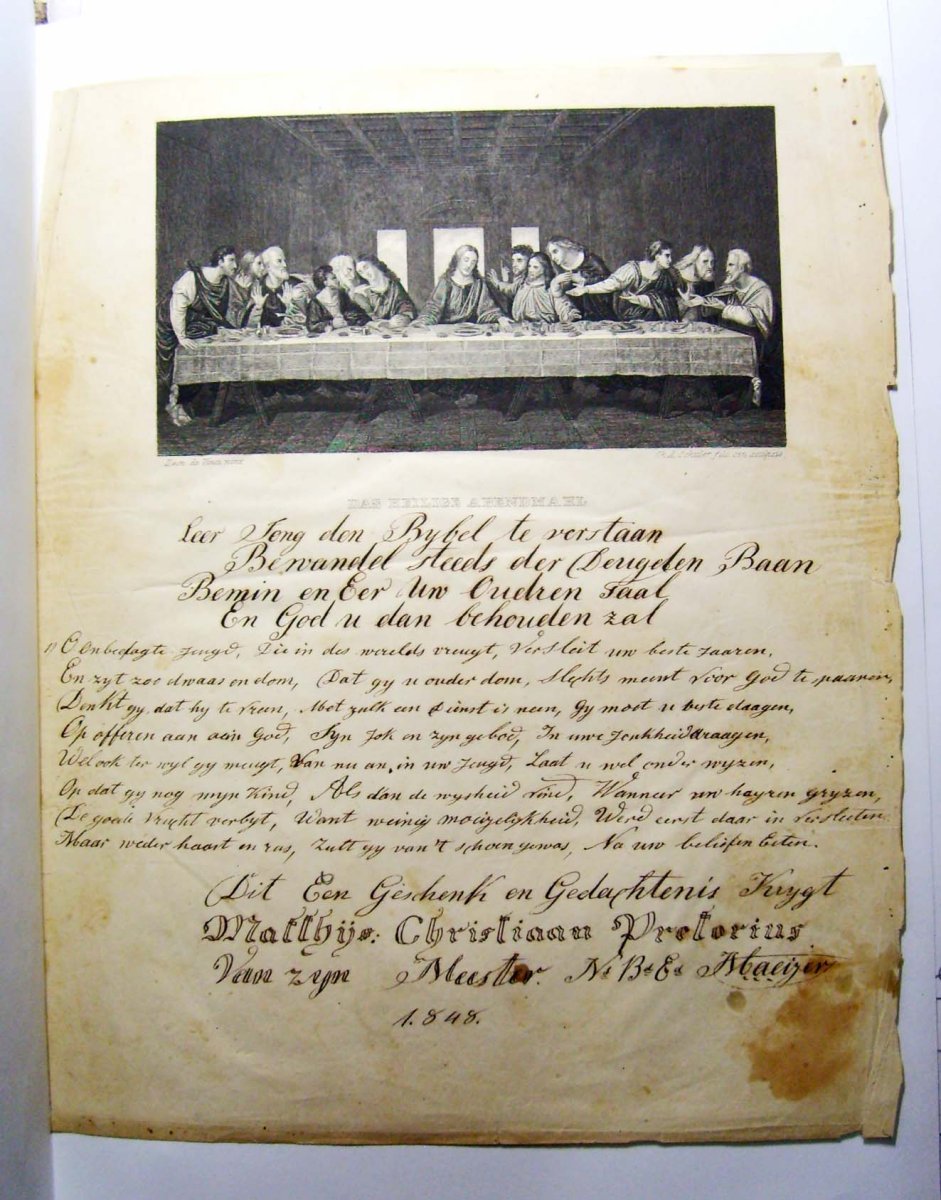 DAS HEILIGE ABENDMAHL
Leer Jong den Bybel te verstaan
Bewandel steeds der Deugden Baan
Bemin en Eer Uw Oudren Taal
En God u dan behouden zal
O Onbedagte Jeugd, Die in des werelds vreugt, Versleit uw beste Jaaren,
En zyt zoo dwaas en dom, Dat gy u ouderdom, Slechts meent voor God te spaaren,
Denkt gy, dat hy te vreen, Met zulk een dienst is neen, Gy moet u beste daagen,
Op offeren aan God, Zyn Jok en zyn gebod, In uwe Jonkheid draagen,
Wel ook ter wyl gy meugt, Van nu an, in uw Jeugd, Laat u wel onder wyzen,
Op dat gy nog myn Kind, Als dan de wysheid vind, Wanneer uw hayren gryzen,
De goede vrucht verbyt, Want weinig moeizelykheid, Werd eerst daar in versleeten
Maar weder haart en ras, Zult gy van't schoen gewas, Na uw believen Eeten.
Dit Een Geschenk en Gedachtenis Krygt
Matthys: Christiaan Pretorius
Van zyn Meester. Maeijer
1848.